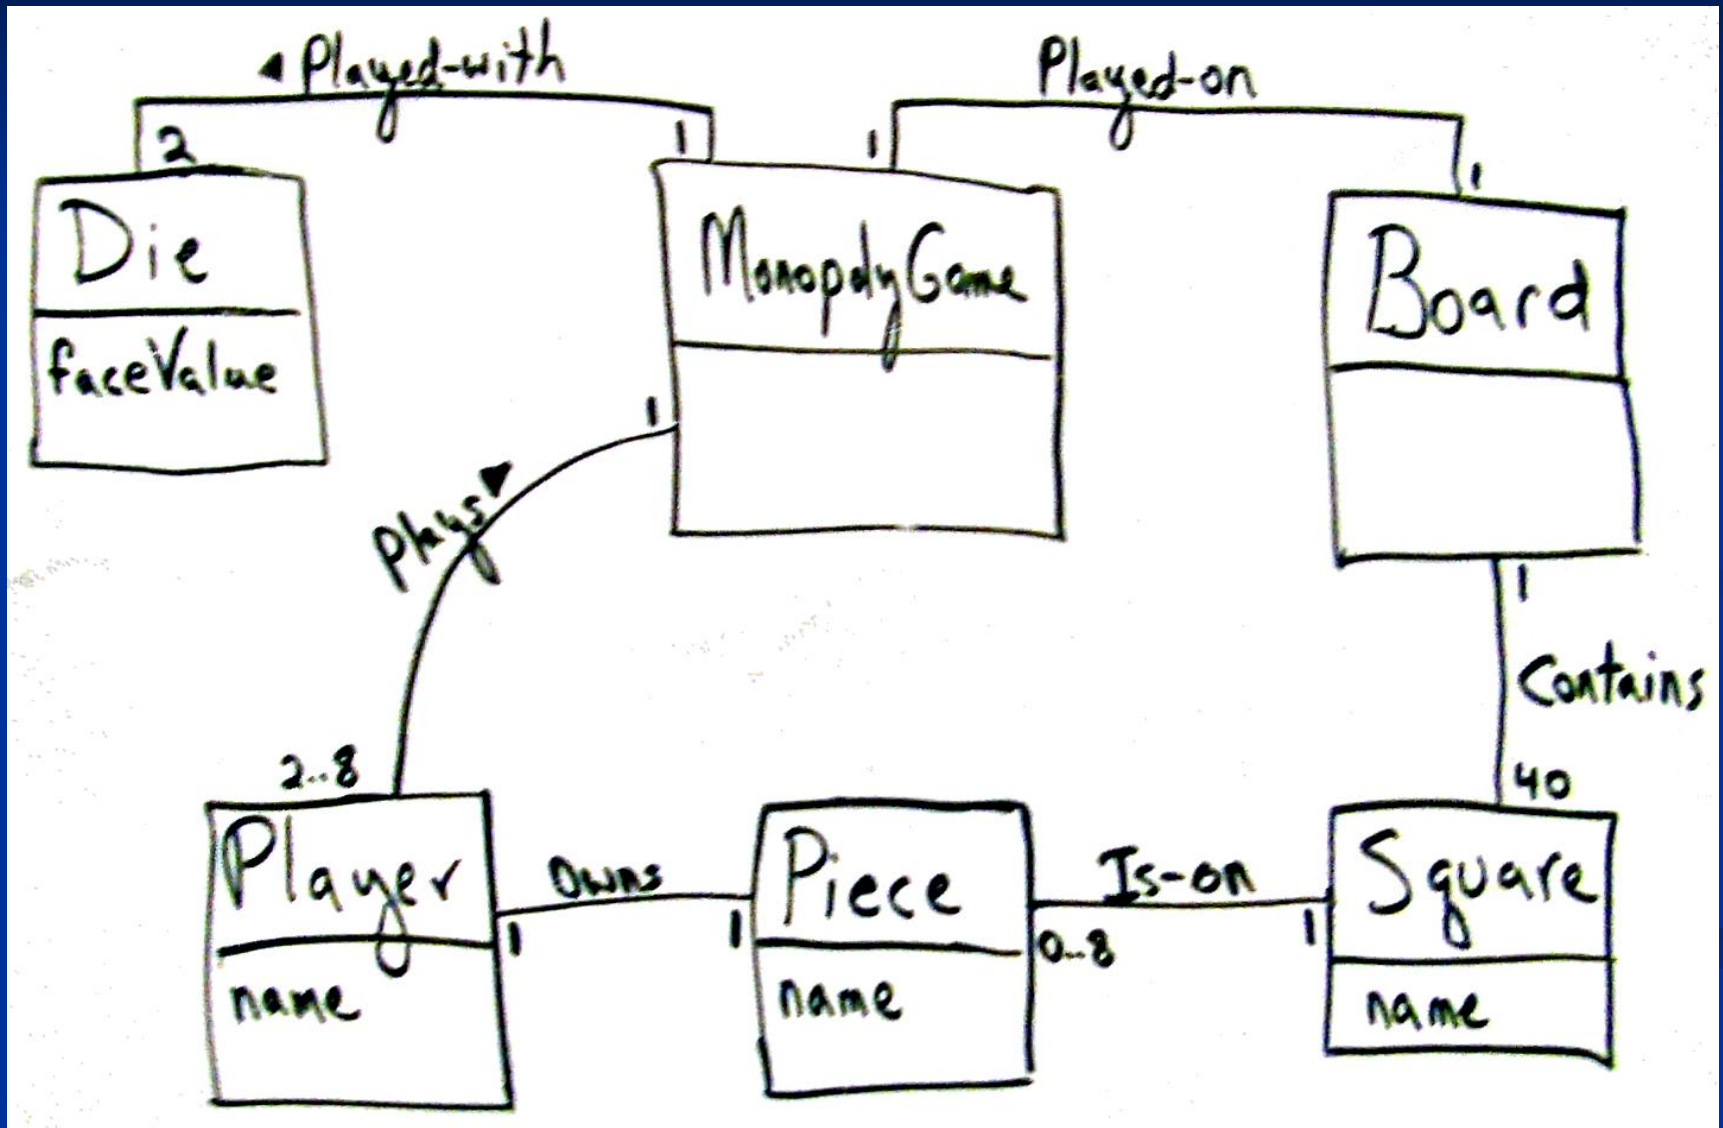 ◄ Played-with
Played-on
2
1
1
1
Die
faceValue
MonopolyGame
Board
1
Plays ►
1
Contains
2..8
40
Player
name
Owns
1
1
Piece
name
Is-on
0..8
1
Square
name